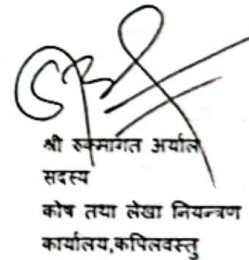 श्री रुकमागत अर्याल
सदस्य
कोष तथा लेखा नियन्त्रण
कार्यालय,कपिलवस्तु